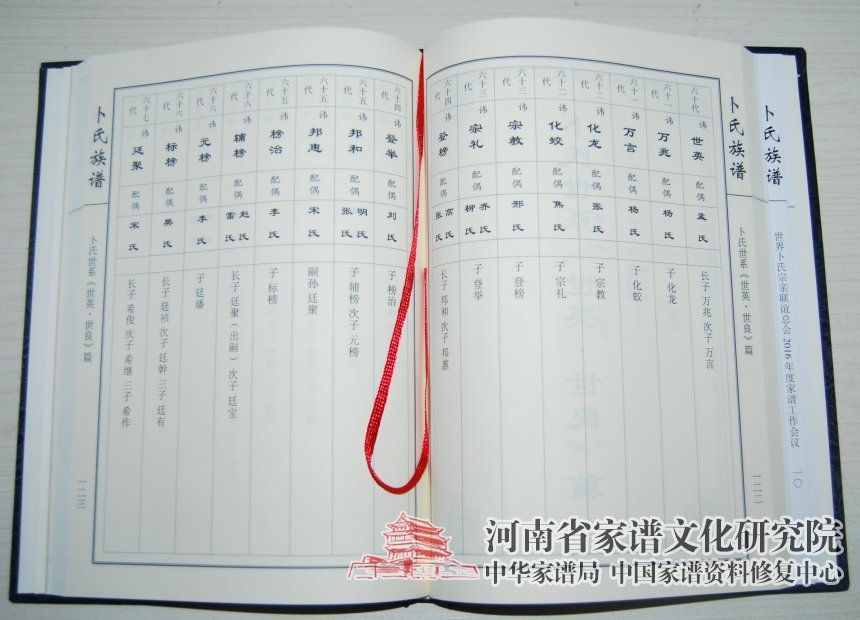 卜氏族谱
世界卜氏宗亲联谊总会2016年度家谱工作会议
一〇
卜氏族谱
卜氏世系《世英·世良》篇
一二二
六十代 讳 世英 配偶 孟氏 长子 万兆 次子 万言
六十一代 讳 万兆 配偶 杨氏 子 化龙
六十一代 讳 万言 配偶 杨氏 子 化蛟
六十二代 讳 化龙 配偶 张氏 子 宗教
六十二代 讳 化蛟 配偶 焦氏 子 宗礼
六十三代 讳 宗教 配偶 邢氏 子 登榜
六十三代 讳 宗礼 配偶 乔氏 柳氏 子 登举
六十四代 讳 登榜 配偶 高氏 张氏 长子 邦和 次子 邦惠
六十四代 讳 登举 配偶 刘氏 子 榜治
六十五代 讳 邦和 配偶 明氏 张氏 子 辅榜 次子 元榜
六十五代 讳 邦惠 配偶 宋氏 嗣孙 廷聚
六十五代 讳 榜治 配偶 李氏 子 标榜
六十六代 讳 辅榜 配偶 赵氏 雷氏 长子 廷聚（出嗣）次子 廷宝
六十六代 讳 元榜 配偶 李氏 子 廷璠
六十六代 讳 标榜 配偶 吴氏 长子 廷祯 次子 廷幹 三子 廷有
六十七代 讳 廷聚 配偶 宋氏 长子 希俊 次子 希继 三子 希作
卜氏族谱
卜氏世系《世英·世良》篇
一二三
河南省家谱文化研究院
中华家谱局 中国家谱资料修复中心